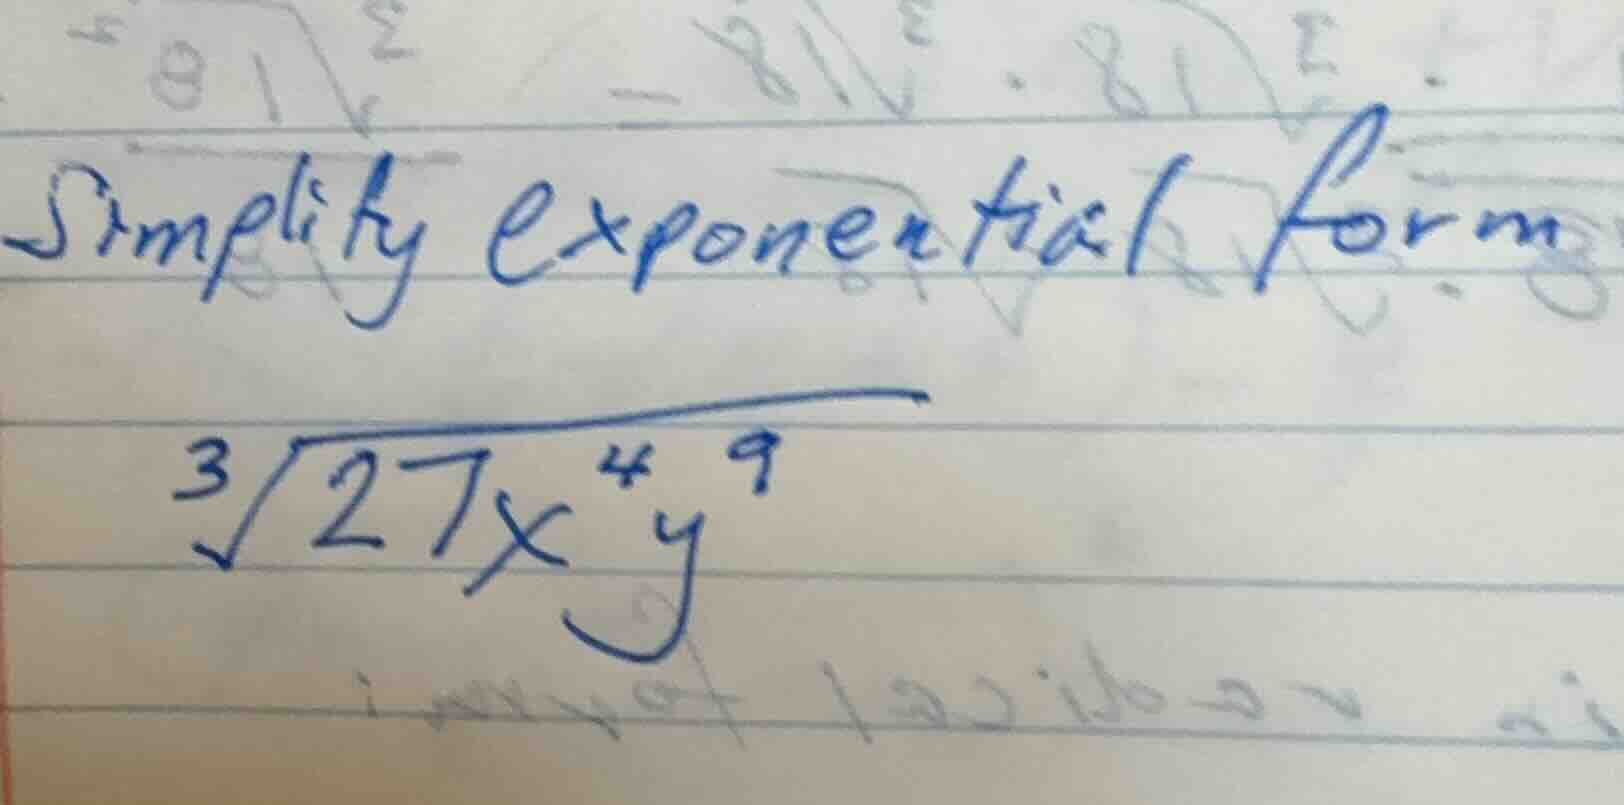 Simplify exponential form
∛27x⁴y⁹